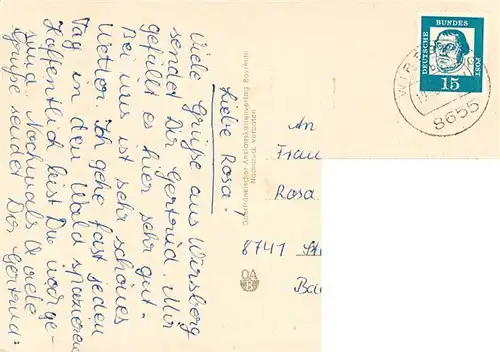 Liebe Rosa!
Viele Grüße aus Wirsberg
sendet Dir Gertrud. Mir
gefällt es hier sehr gut.
Bei uns ist sehr schönes
Wetter. Ich gehe fast jeden
Tag in den Wald spazieren
Hoffentlich bist Du
sund Nochmals viele
Grüße sendet Dir
Gertrud.
Oberfränkischer Ansichtskartenverlag Bayreuth
Nachdruck verboten
OA
B
DEUTSCHE
BUNDES
POST
15
WIRS
8655
An
Frau
Rosa
8741